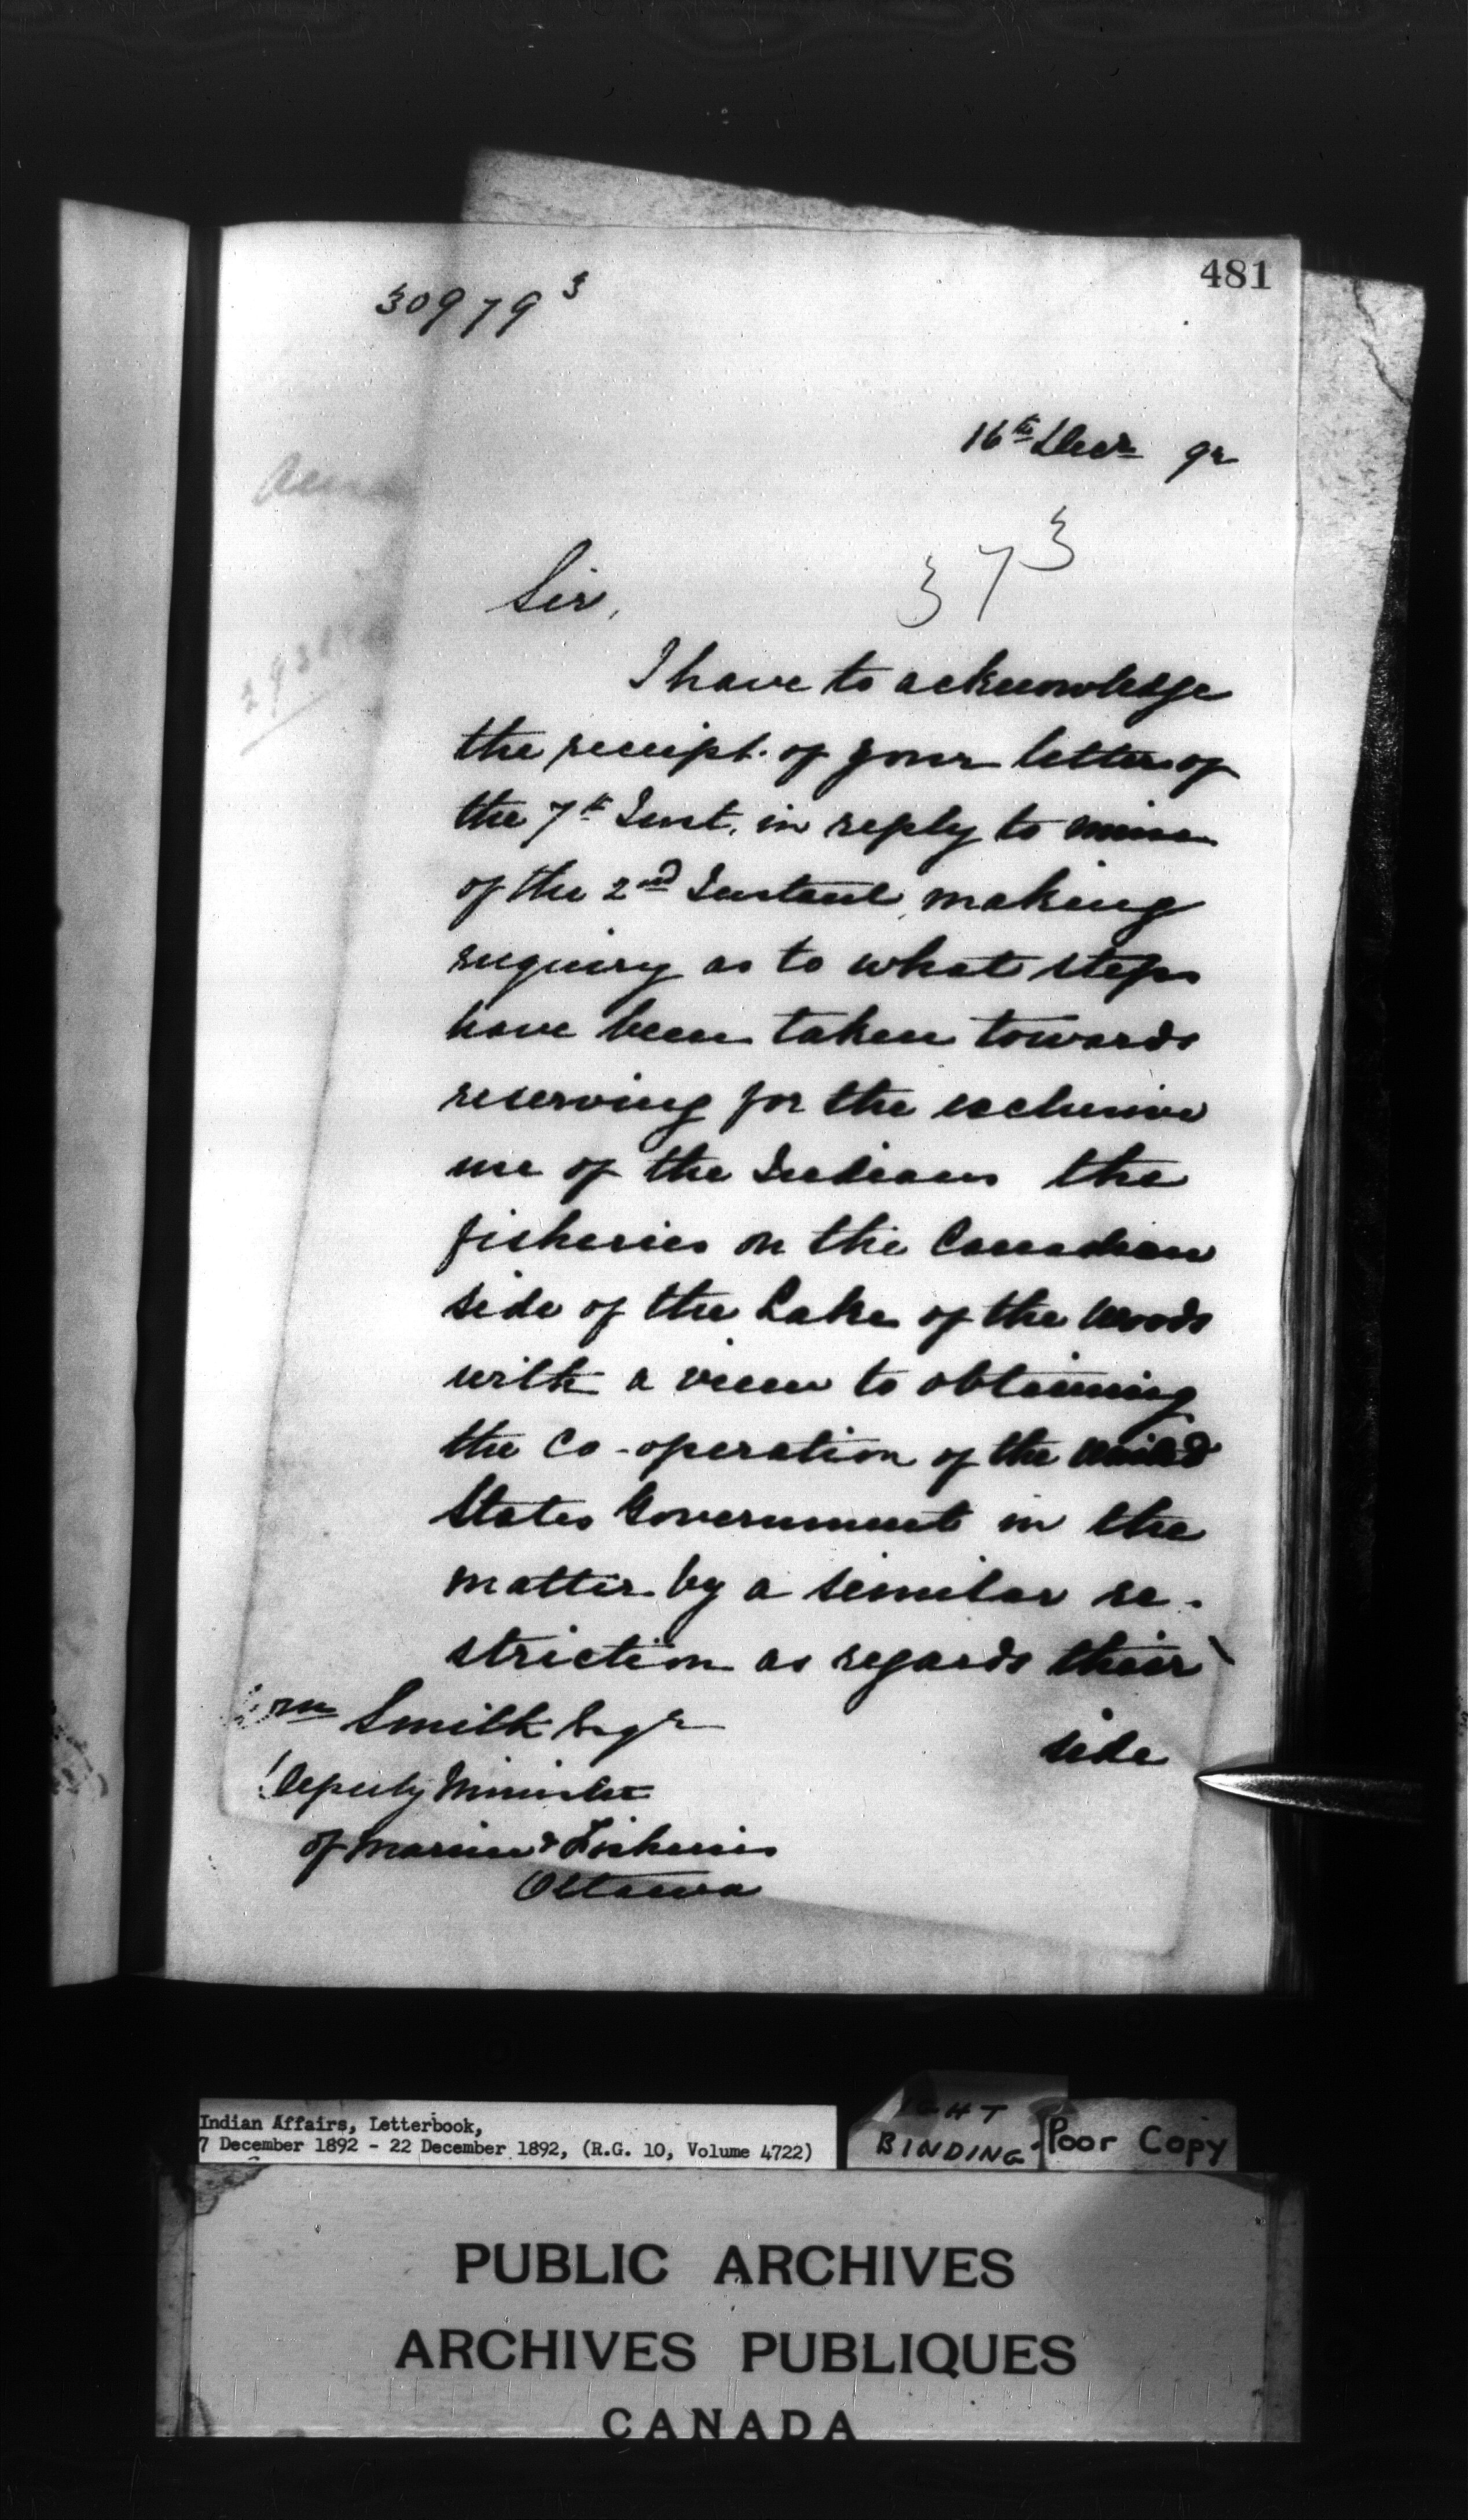 481
30979 3
16th Decr 92
373
Sir,
I have to acknowledge
the receipt of your letter of
the 7th Inst. in reply to mine
of the 2nd Instant, making
enquiry as to what steps
have been taken towards
reserving for the exclusive
use of the Indians the
fisheries on the Canadian
side of the Lake of the Woods
with a view to obtaining
the Co-operation of the United
States Government in the
matter by a similar re-
striction as regards their
side
Wm Smith Esqr
Deputy Minister
of Marine & Fisheries
Ottawa
Indian Affairs, Letterbook,
7 December 1892 - 22 December 1892, (R.G. 10, Volume 4722)
BINDING
Poor Copy
PUBLIC ARCHIVES
ARCHIVES PUBLIQUES
CANADA